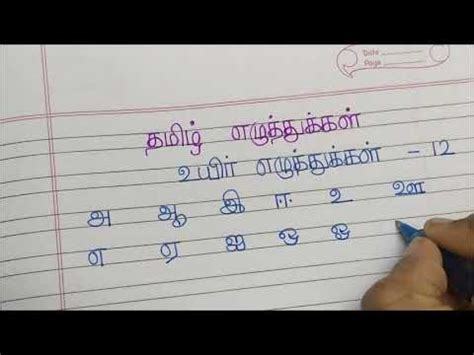 Date
Page
தமிழ் எழுத்துக்கள்
உயிர் எழுத்துக்கள் - 12
அ ஆ இ ஈ உ ஊ
எ ஏ ஐ ஒ ஓ